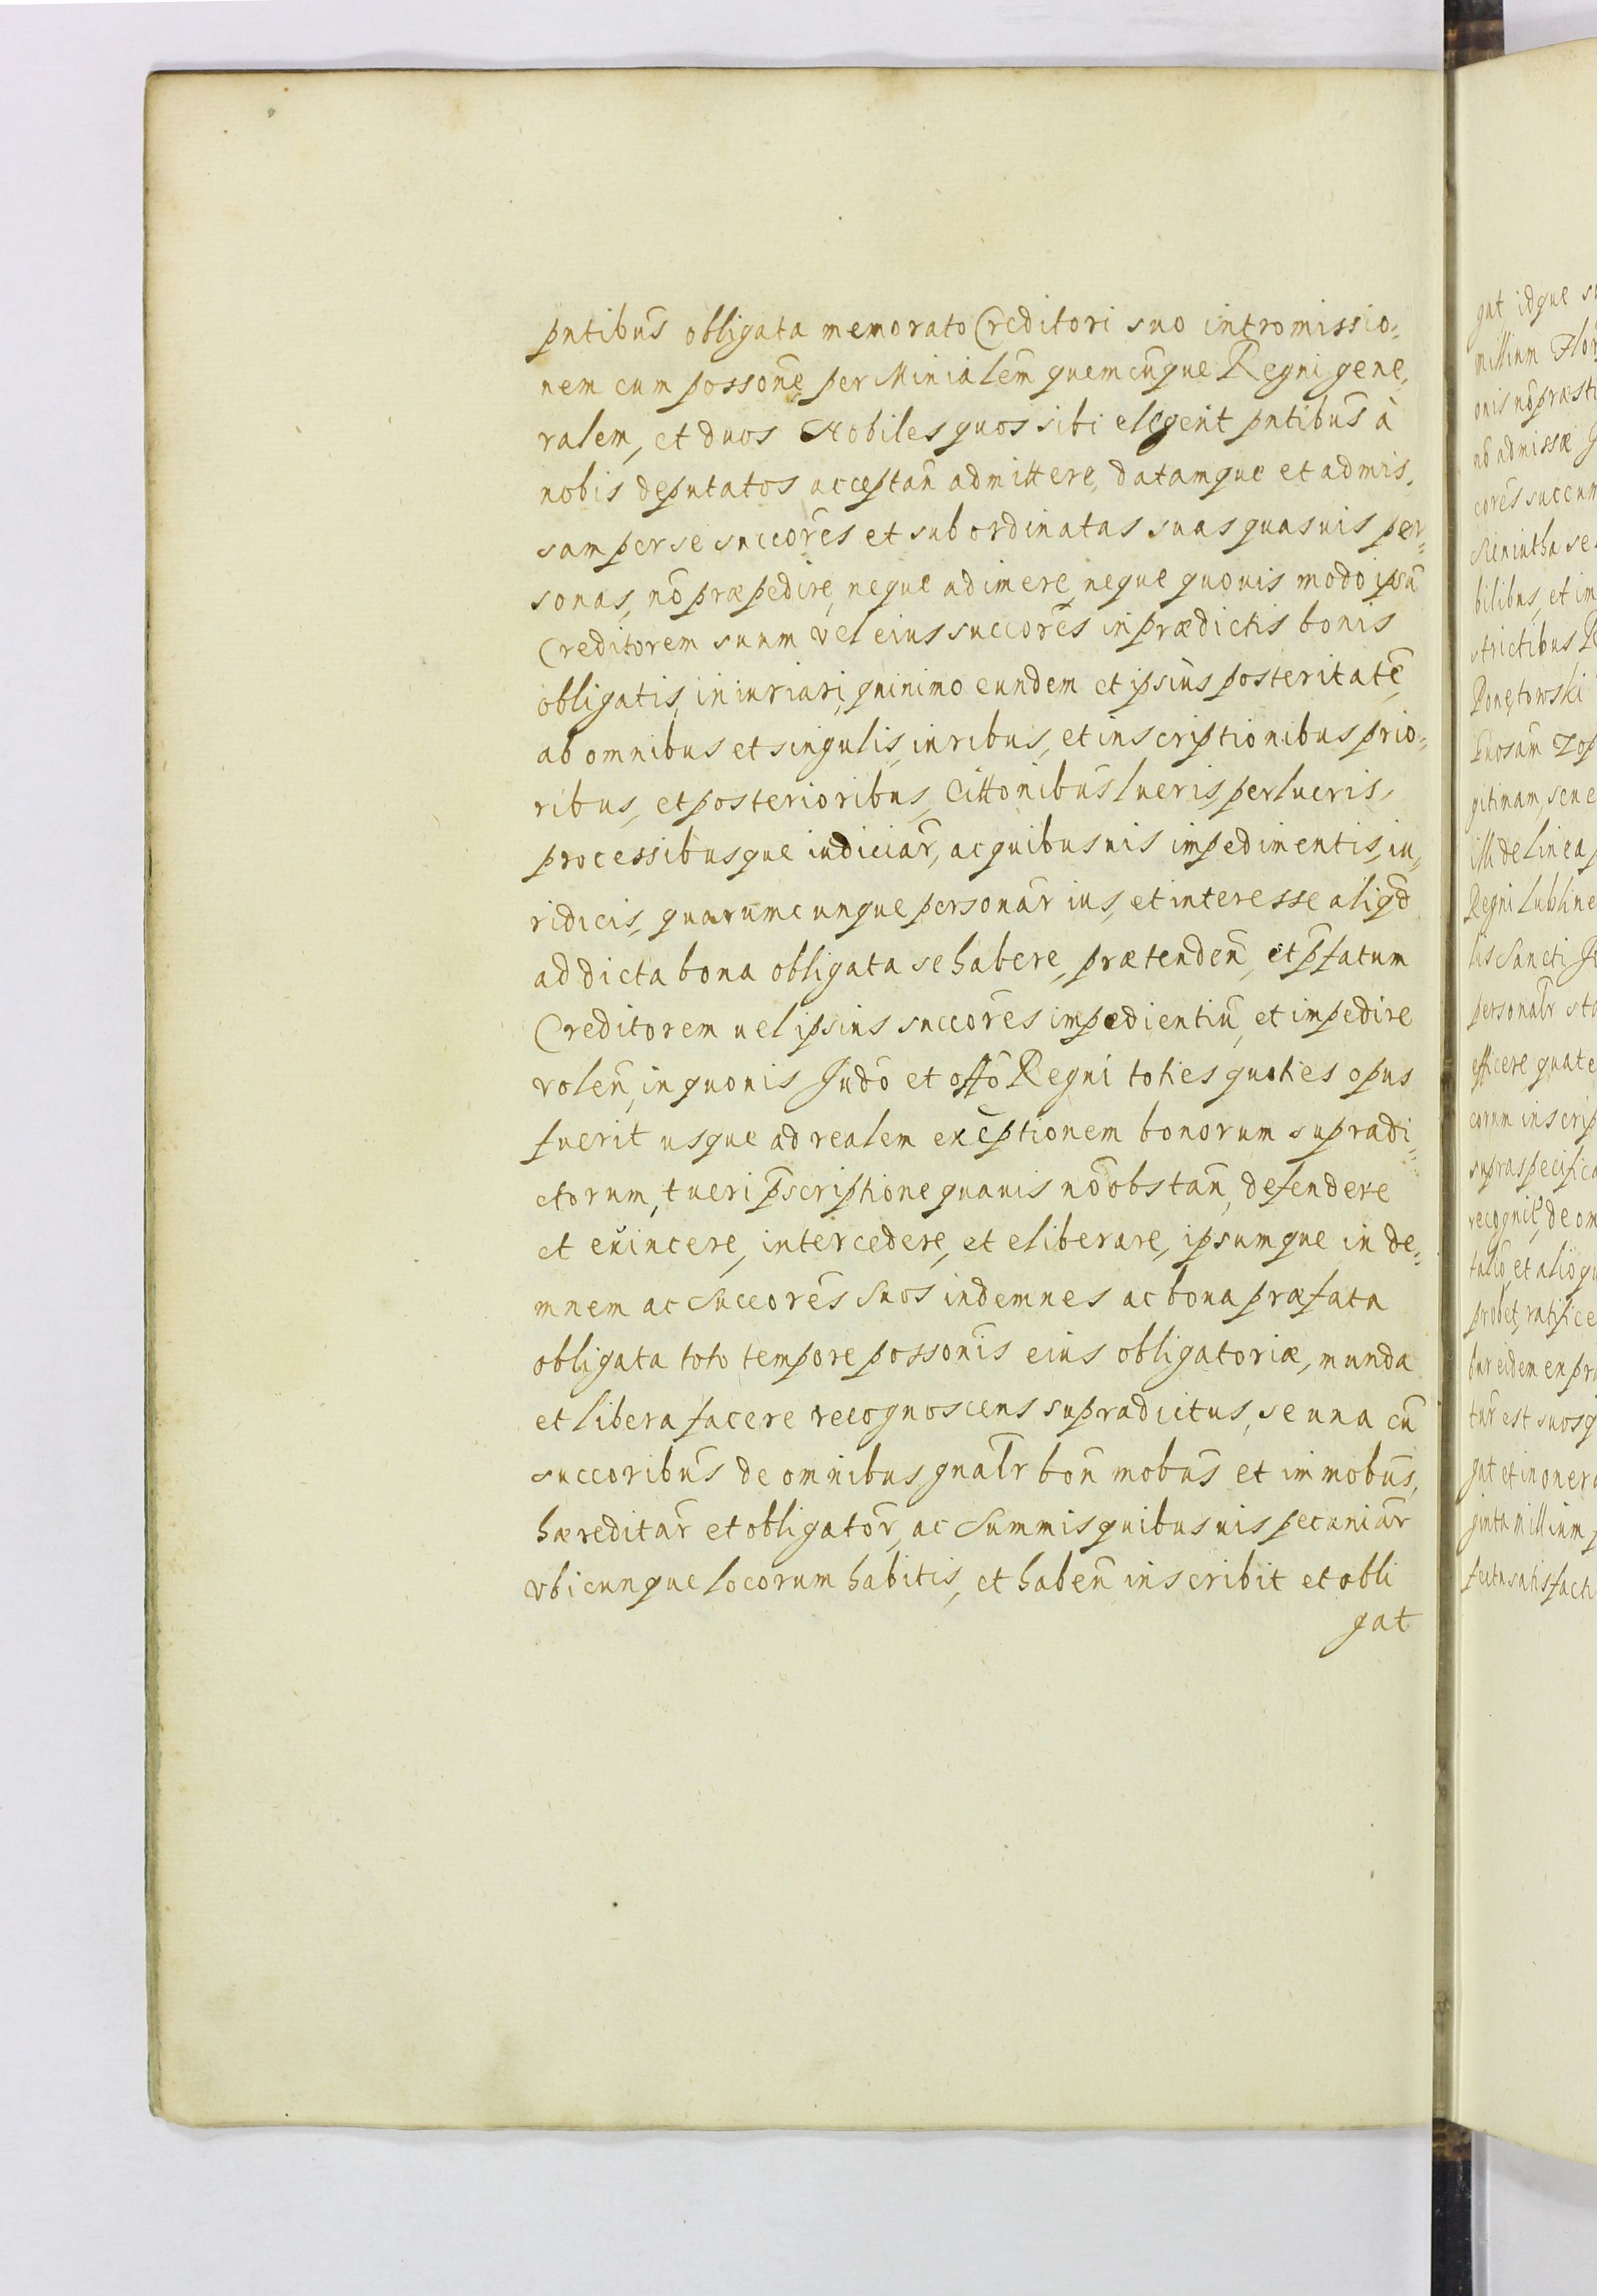 pntibus̃ obligata memorato Creditori suo intromissio=
nem cum possonẽ per Minialem̃ quemcũque Regni gene,
ralem, et duos Nobiles quos sibi elegerit pntibus̃ à
nobis deputatos acceptañ admittere, datamque et admis,
sam per se succores̃ et subordinatas suas quasuis per=
sonas, nõ præpedire, neque adimere, neque quouis modo ipsũ
Creditorem suum vel eius succores̃ in prædictis bonis
obligatis, iniuriari, quinimo eundem et ipsius posteritatẽ
ab omnibus et singulis, iuribus, et inscriptionibus prio=
ribus, et posterioribus, Cittonibus̃ lucris, perlucris,
processibusque iudiciar̃, ac quibusuis impedimentis, iu,
ridicis, quarumcunque personar̃ ius, et interesse aliqd̃
ad dicta bona obligata se habere, prætendeñ, et p̃fatum
Creditorem uel ipsius succores̃ impedientiũ, et impedire
voleñ, in quouis Judõ et offõ Regni toties quoties opus
fuerit usque ad realem exẽptionem bonorum supradi=
ctorum, tueri p̃scriptione quauis nõ obstañ, defendere
et euincere, intercedere, et eliberare, ipsumque inde=
mnem ac Succores̃ Suos indemnes ac bona præfata
obligata toto tempore possonis̃ eius obligatoriæ, munda
et libera facere recognoscens supradictus, se una cũ
succoribus̃ de omnibus gnalr̃ boñ mobus̃ et immobus̃,
hæreditar̃ et obligator̃, ac Summis quibusuis pecuniar̃
vbicunque locorum habitis, et habeñ inscribit et obli
gat
gat idque
millium
admissæ
bilibus, et im
strictibus
Ponętowski
gitimam, seu e
Regni Lubline
lis Sancti
efficere quate
corum inscrip
supraspecifica
probet, ratifice
tur̃ est suosq
gat et inonera
ginta millium